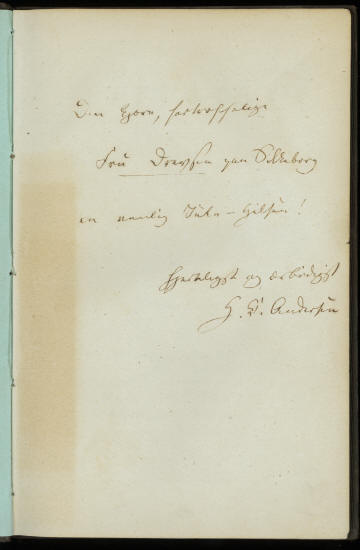 Den kjære, fortræffelige
Fru Drewsen paa Silkeborg
en venlig Jule-Hilsen!
Hjerteligst og ærbødigst
H. C. Andersen